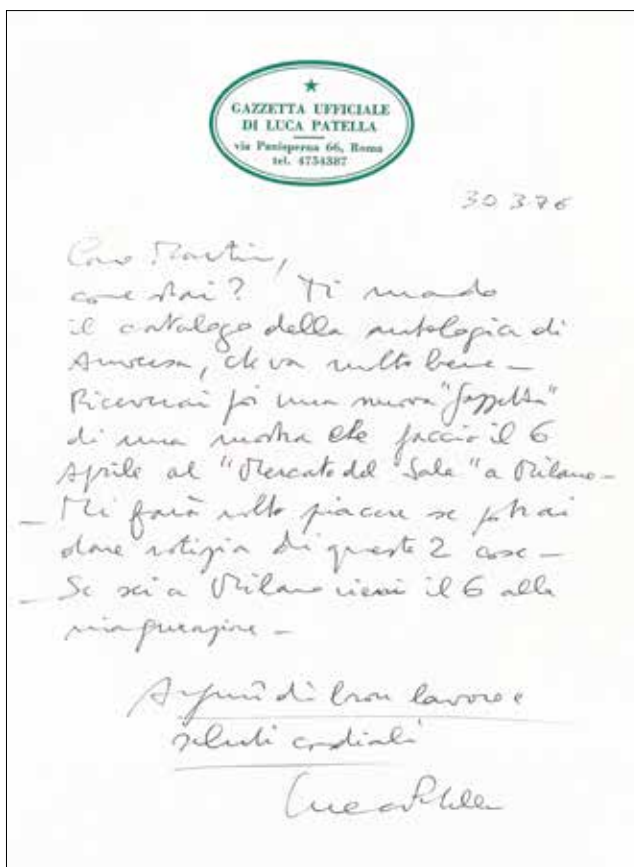 GAZZETTA UFFICIALE
DI LUCA PATELLA
via Panisperna 66, Roma
tel. 4754387
30 3 76
Caro Martin,
come stai? Ti mando
il catalogo della antologia di
Anversa, che va molto bene –
Riceverai poi una nuova "Gazzetta"
di una mostra che faccio il 6
Aprile al "Mercato del Sale" a Milano –
– Mi farà molto piacere se potrai
dare notizia di queste 2 cose –
– Se sei a Milano vieni il 6 alla
inaugurazione –
Auguri di buon lavoro e
saluti cordiali
Luca Patella